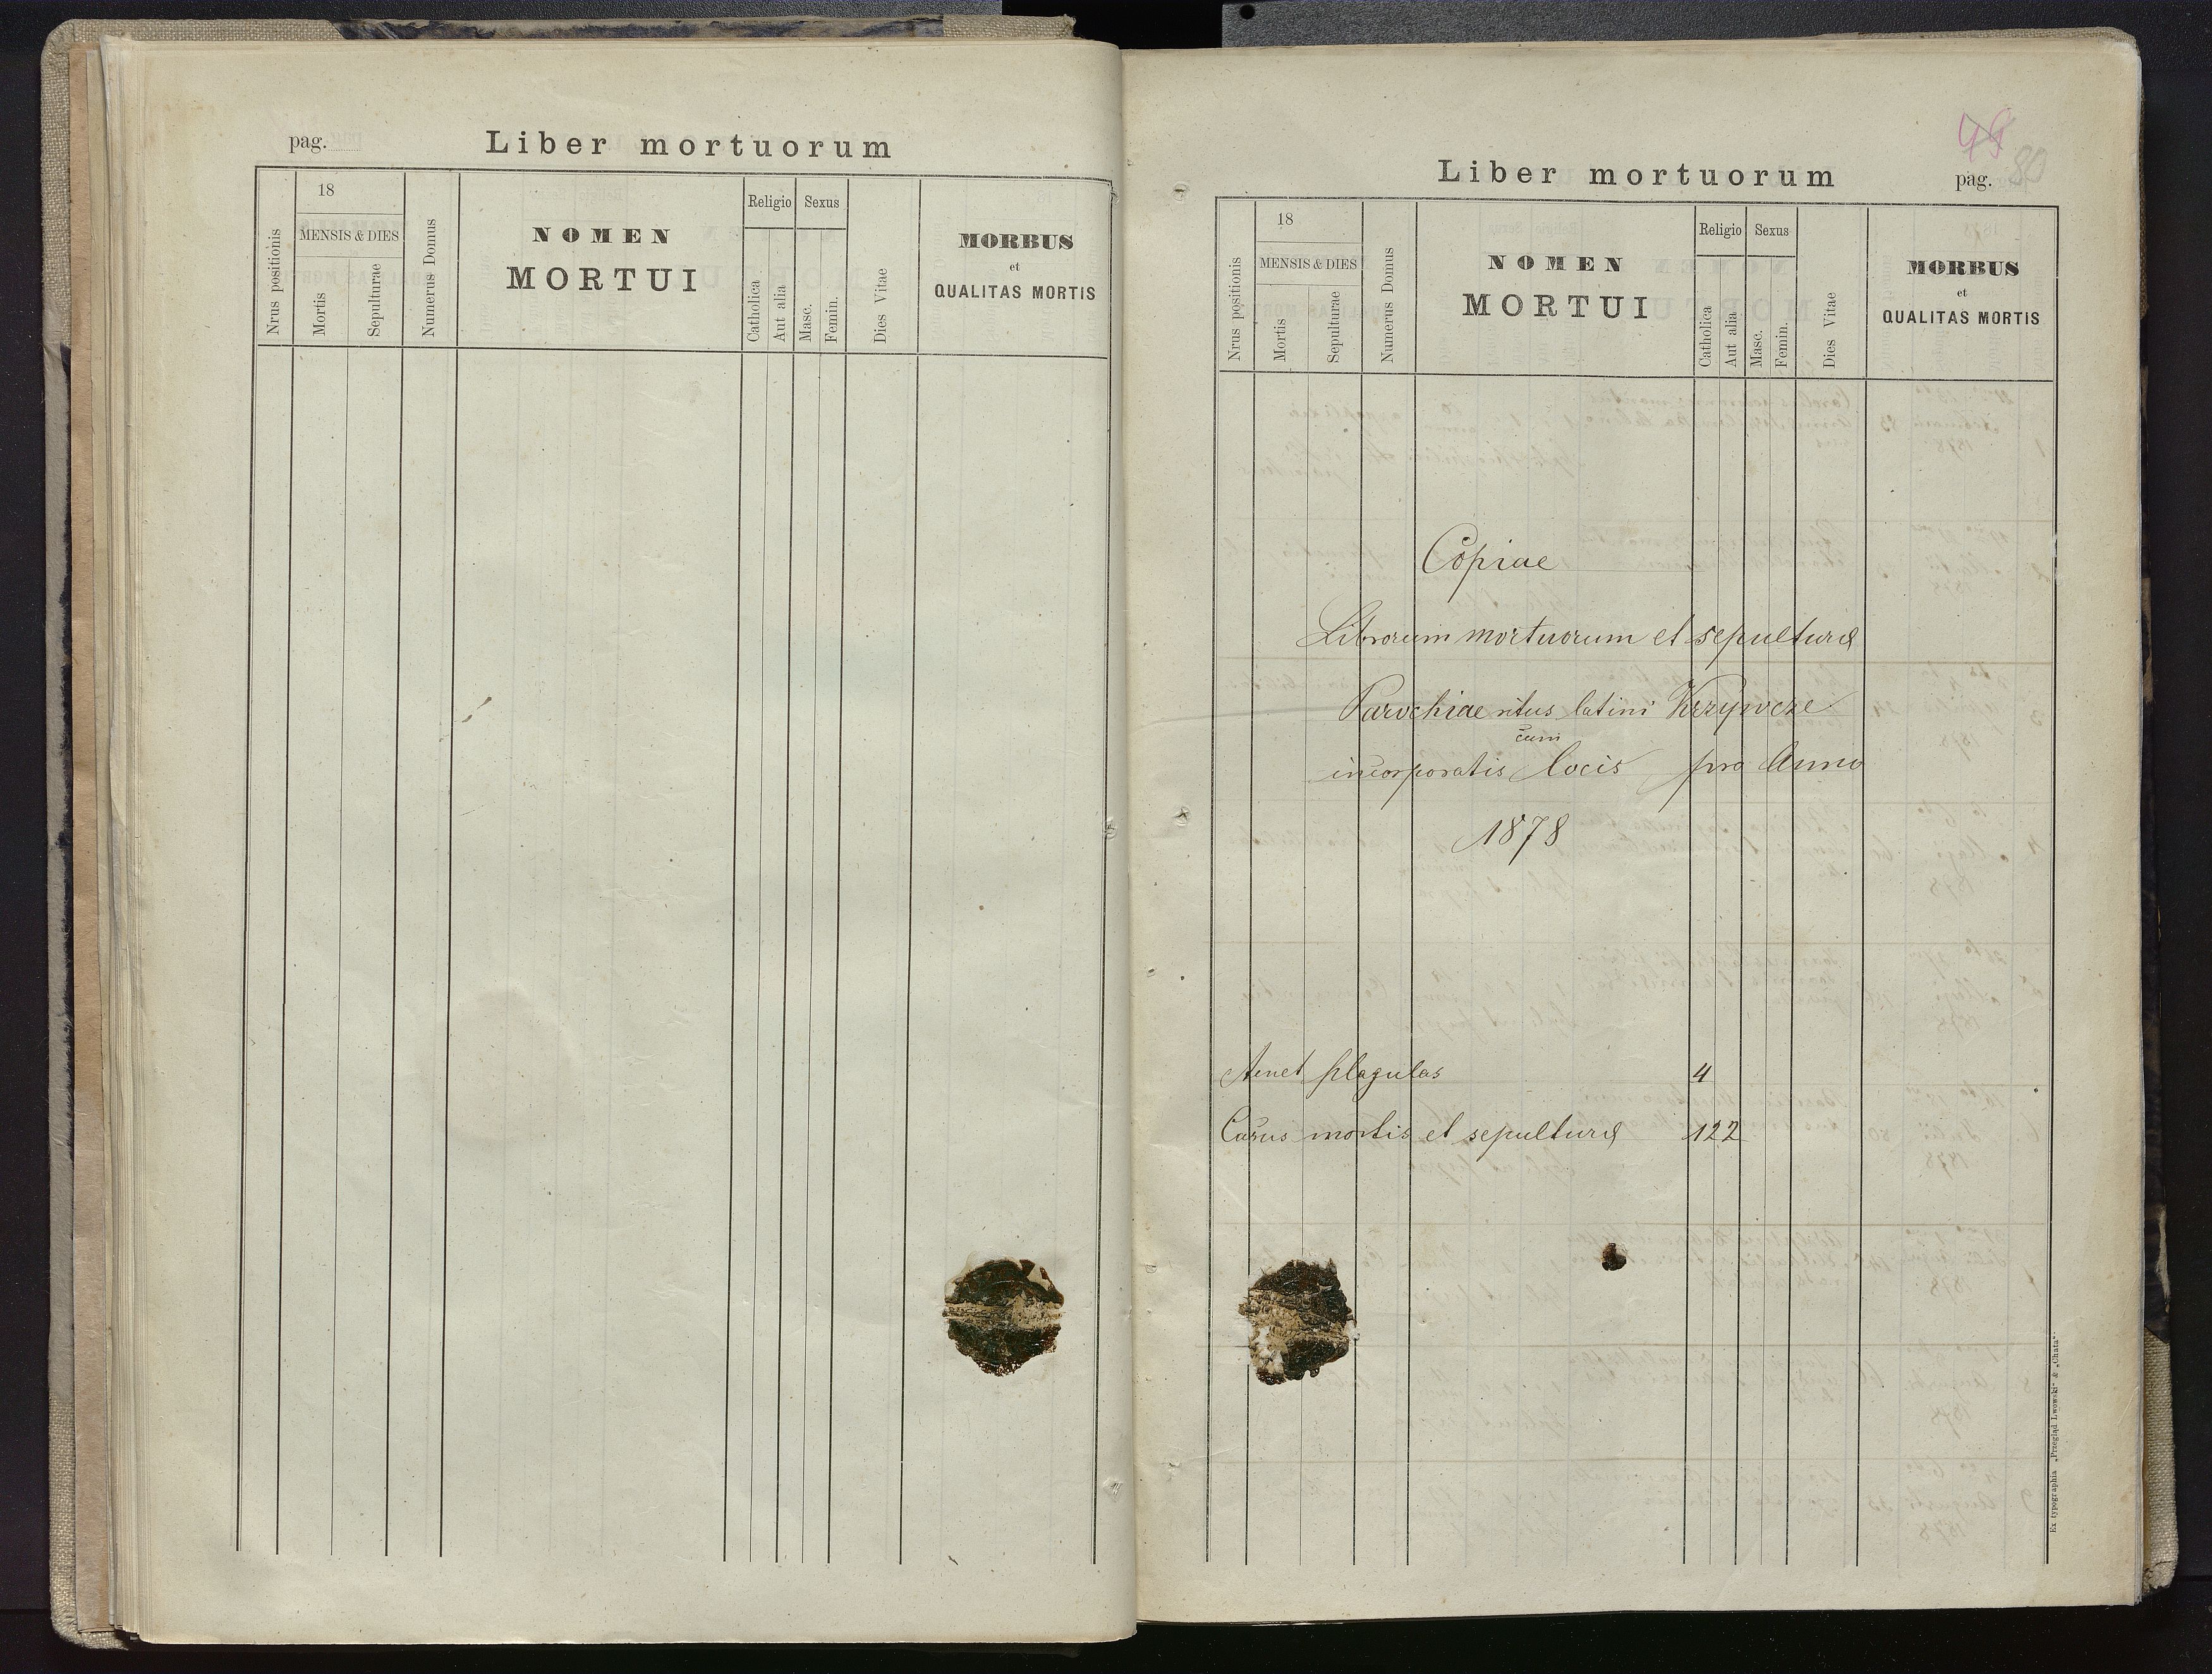 pag.
Liber mortuorum
Nrus positionis
18
MENSIS & DIES
Mortis
Sepulturae
Numerus Domus
NOMEN
MORTUI
Religio
Catholica
Aut alia
Sexus
Masc.
Femin.
Dies Vitae
MORBUS
et
QUALITAS MORTIS
80
Liber mortuorum
pag.
Nrus positionis
18
MENSIS & DIES
Mortis
Sepulturae
Numerus Domus
NOMEN
MORTUI
Religio
Catholica
Aut alia
Sexus
Masc.
Femin.
Dies Vitae
MORBUS
et
QUALITAS MORTIS
Copiae
Librorum mortuorum et sepulturæ
Parochiae ritus latini Krzywcze
cum
incorporatis locis pro Anno
1878
plagulas 4
Casus mortis et sepulturæ 122
Ex typographia „Przegląd Lwowski" & „Chata".